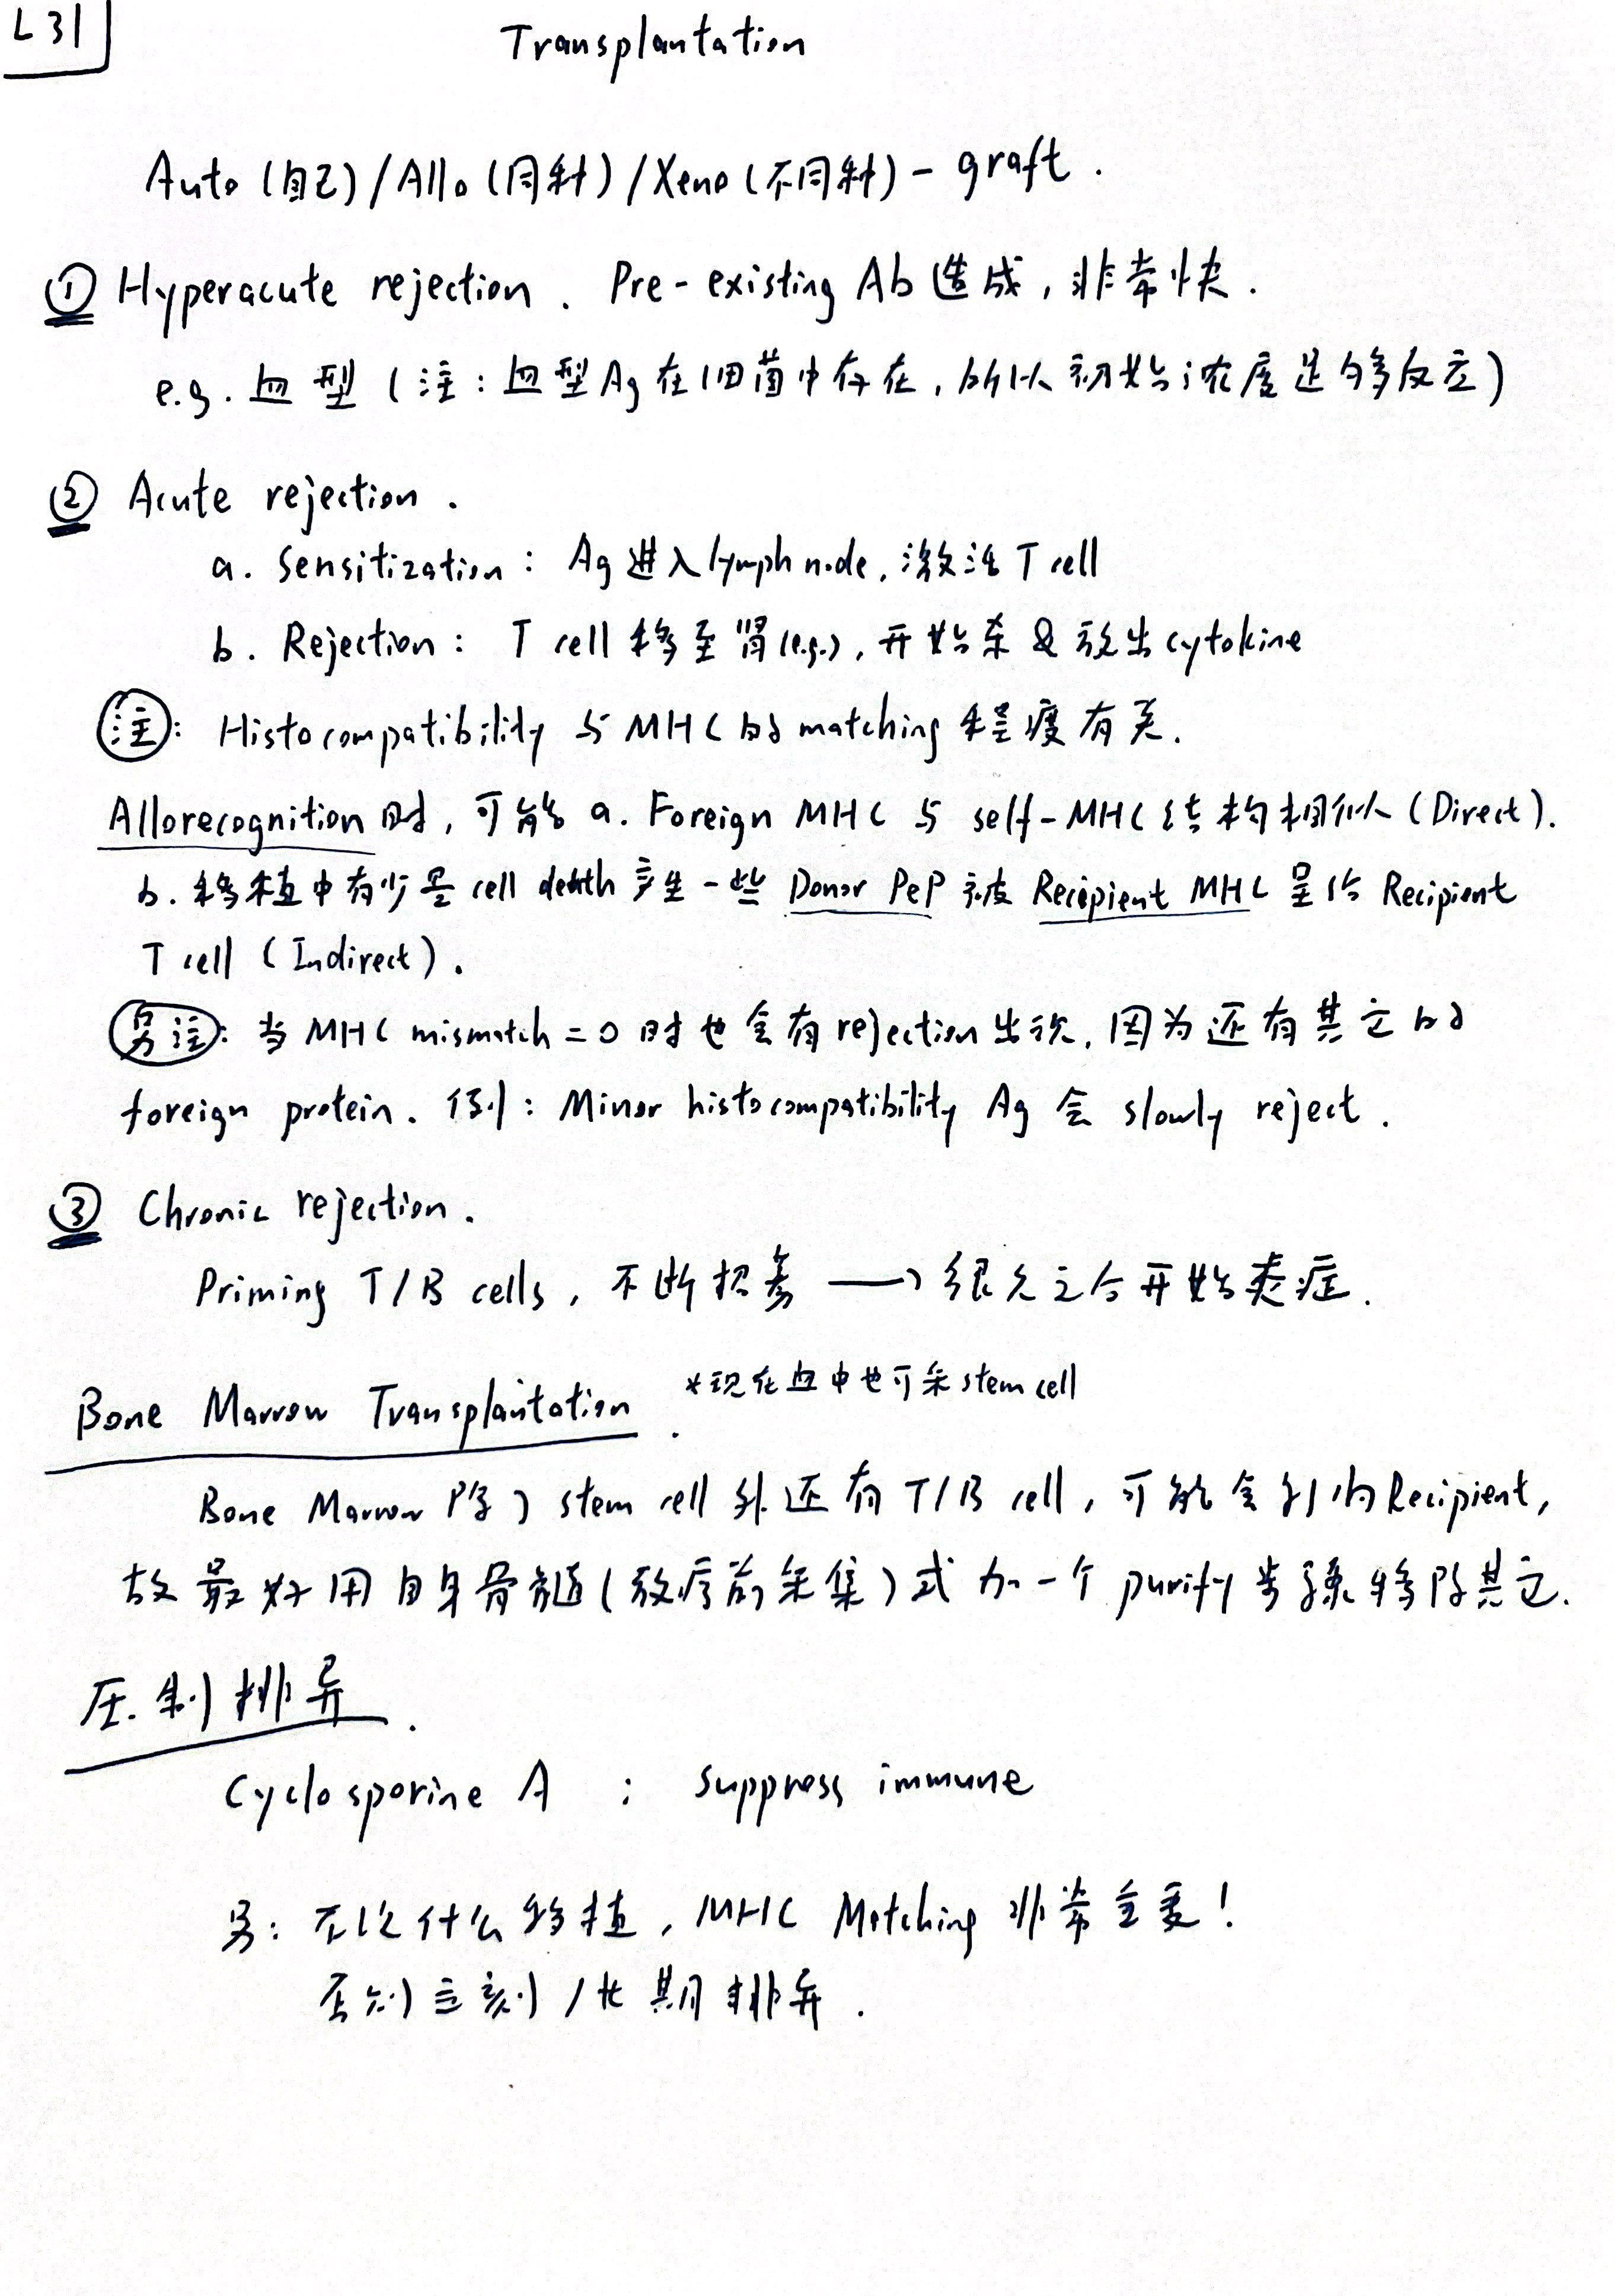 L31
Transplantation
Auto (自己) / Allo (同种) / Xeno (不同种) - graft.
① Hyperacute rejection. Pre-existing Ab 造成, 非常快.
e.g. 血型 (注: 血型Ag在细菌中存在, 所以初始浓度足够多反应)
② Acute rejection.
a. Sensitization: Ag 进入 lymph node, 激活 T cell
b. Rejection: T cell 移至肾 (e.g.), 开始杀 & 放出 cytokine
注: Histocompatibility 与 MHC 的 matching 程度有关.
Allorecognition 时, 可能 a. Foreign MHC 与 self-MHC 结构相似 (Direct).
b. 移植中有少量 cell death 产生一些 Donor Pep 被 Recipient MHC 呈给 Recipient
T cell (Indirect).
另注: 当 MHC mismatch = 0 时也会有 rejection 出现, 因为还有其它的
foreign protein. 例: Minor histocompatibility Ag 会 slowly reject.
③ Chronic rejection.
Priming T/B cells, 不断招募 → 很久之后开始炎症.
Bone Marrow Transplantation. *现在血中也可采 stem cell
Bone Marrow 除了 stem cell 外还有 T/B cell, 可能会 Recipient,
故最好用自身骨髓 (放疗前采集) 或加一个 purify 步骤移除其它.
压制排异.
Cyclosporine A : suppress immune
另: 不论什么移植, MHC Matching 非常重要!
否则立刻/长期排异.